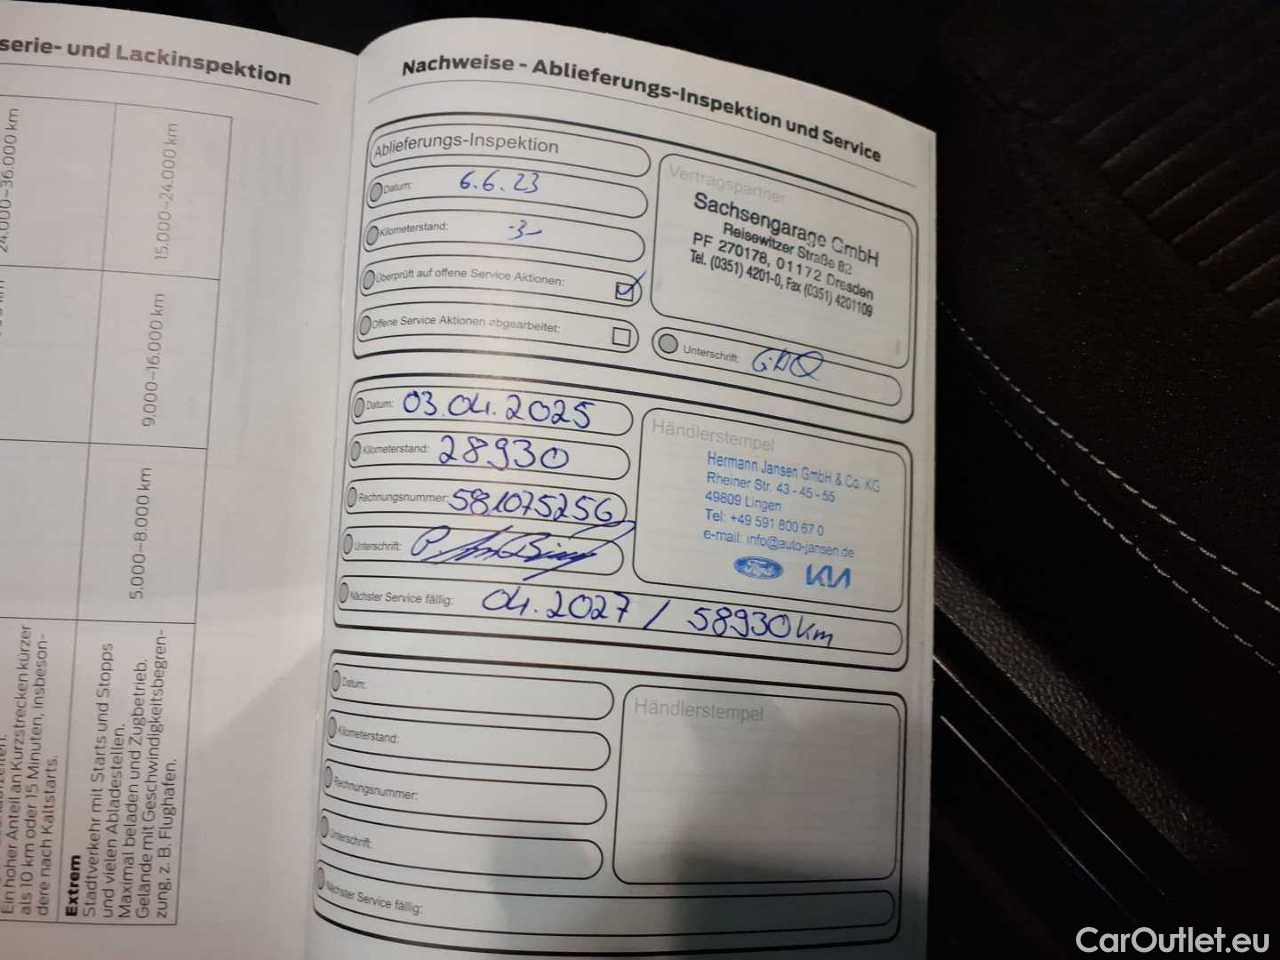 serie- und Lackinspektion
24.000–36.000 km
15.000–24.000 km
9.000–16.000 km
5.000–8.000 km
Ein hoher Anteil an Kurzstrecken kürzer
als 10 km oder 15 Minuten, insbeson-
dere nach Kaltstarts.
Extrem
Stadtverkehr mit Starts und Stopps
und vielen Abladestellen.
Maximal beladen und Zugbetrieb.
Gelände mit Geschwindigkeitsbegren-
zung, z. B. Flughafen.
Nachweise - Ablieferungs-Inspektion und Service
Ablieferungs-Inspektion
Datum: 6.6.23
Kilometerstand: -3-
Überprüft auf offene Service Aktionen:
Offene Service Aktionen abgearbeitet:
Vertragspartner
Sachsengarage GmbH
Reisewitzer Straße 82
PF 270178, 01172 Dresden
Tel. (0351) 4201-0, Fax (0351) 4201109
Unterschrift:
Datum: 03.04.2025
Kilometerstand: 28930
Rechnungsnummer: 581075256
Unterschrift:
Nächster Service fällig: 04.2027 / 58930 km
Händlerstempel
Hermann Jansen GmbH & Co. KG
Rheiner Str. 43 - 45 - 55
49809 Lingen
Tel: +49 591 800 67 0
e-mail: info@auto-jansen.de
Ford KIA
Datum:
Kilometerstand:
Rechnungsnummer:
Unterschrift:
Nächster Service fällig:
Händlerstempel
CarOutlet.eu